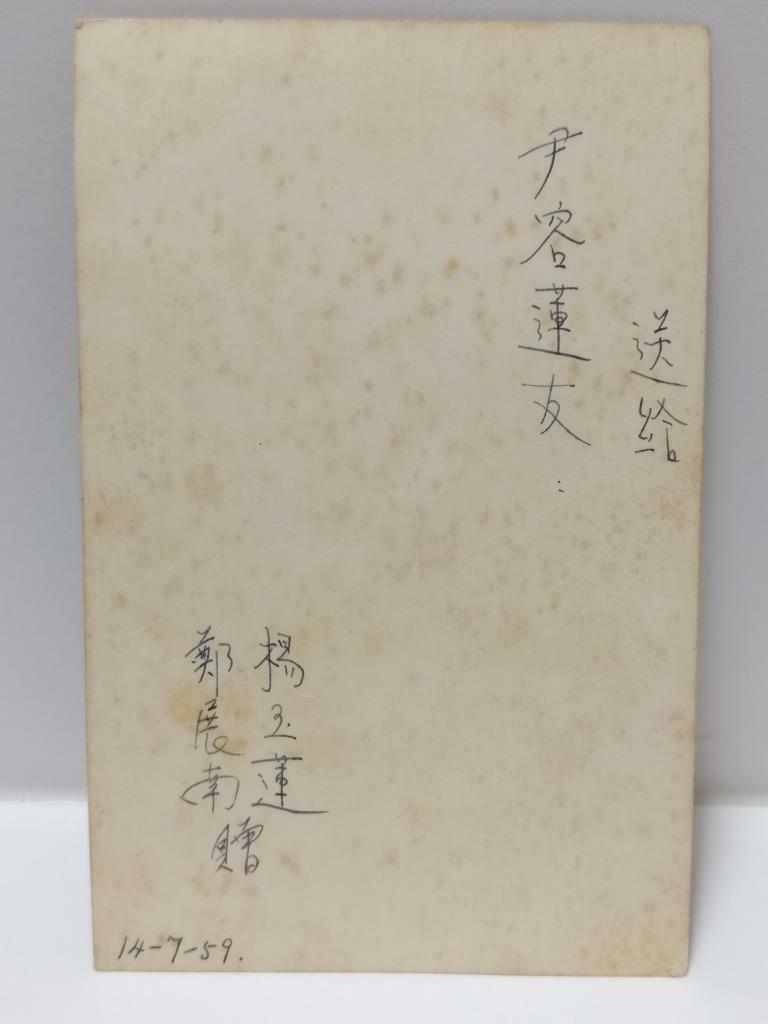 送給
尹容蓮友：
楊玉蓮
鄭展南
贈
14-7-59.